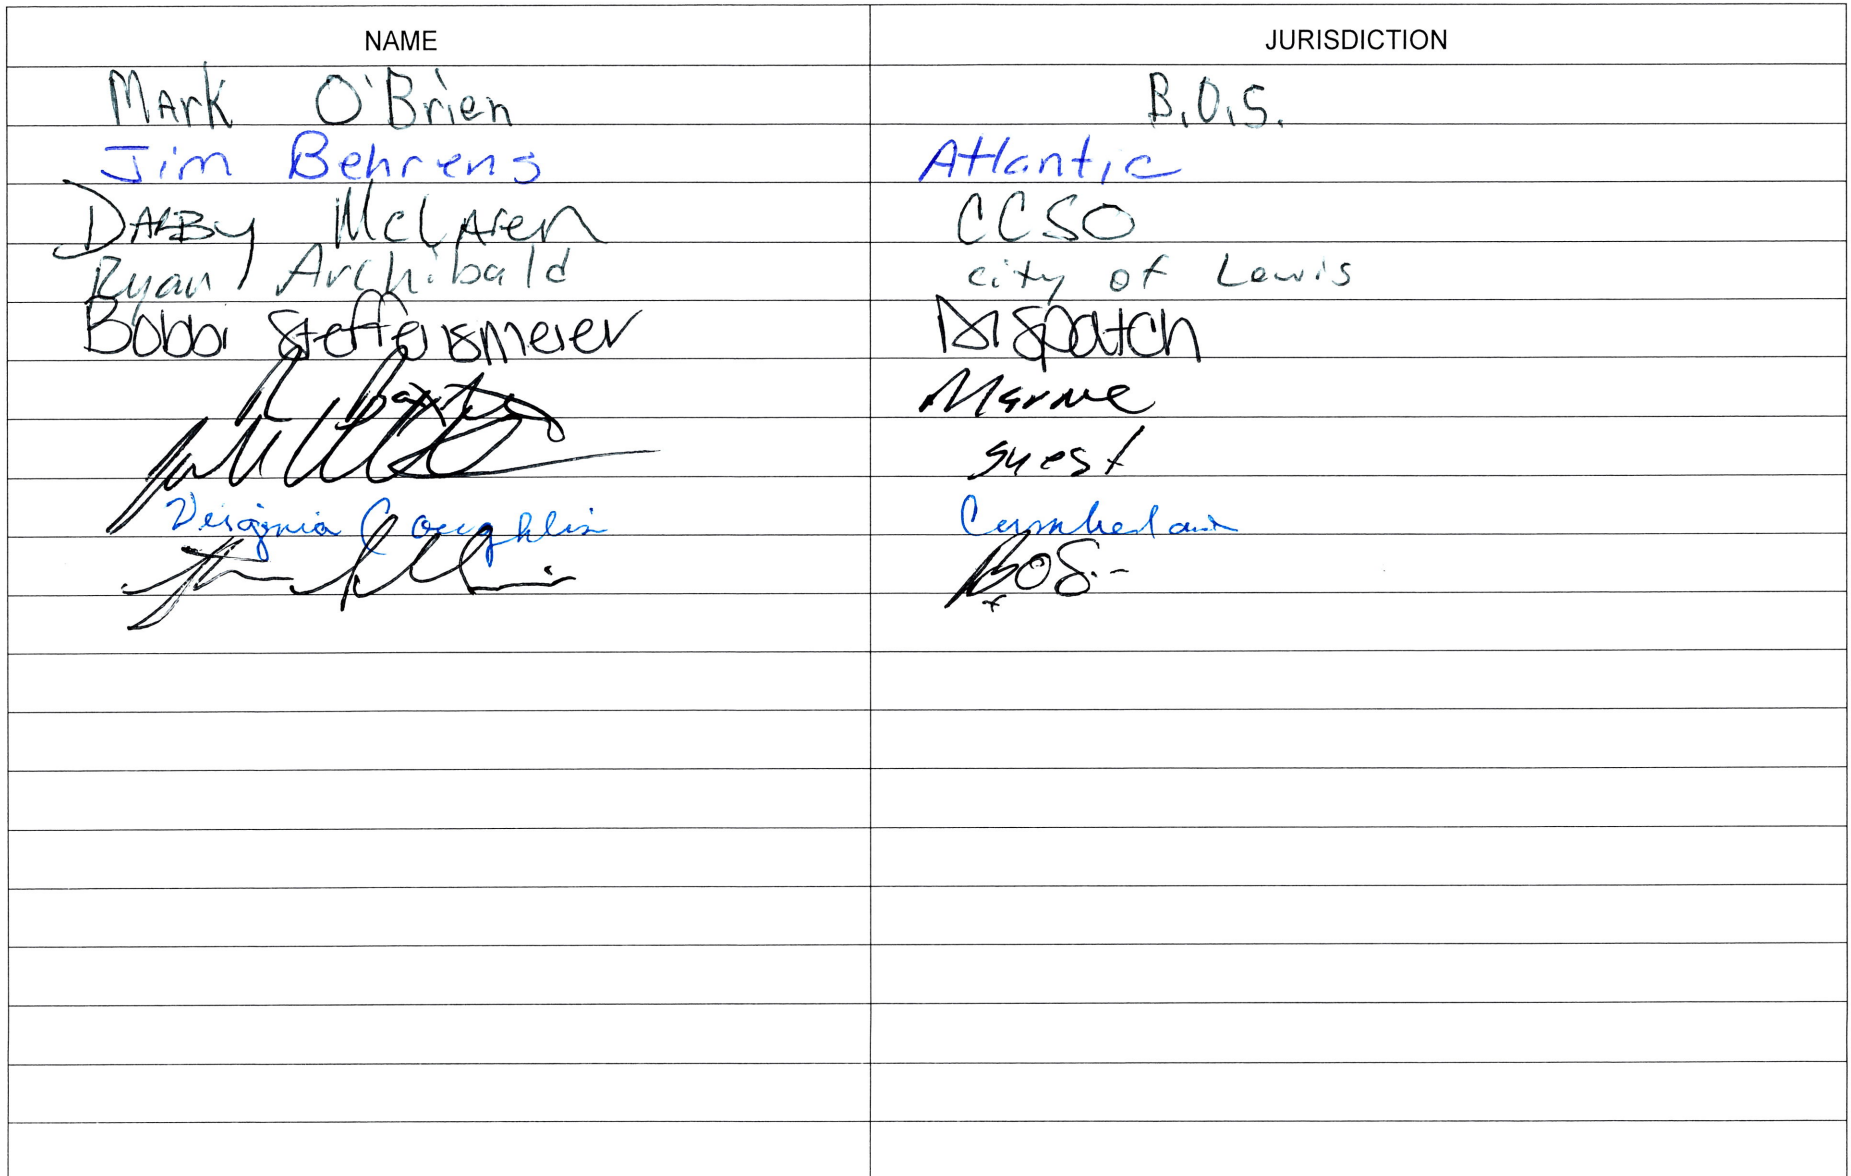 NAME JURISDICTION
Mark O'Brien B.O.S.
Jim Behrens Atlantic
Darby McLaren CCSO
Ryan Archibald city of Lewis
Bobbi Steffensmeier Dispatch
Baxter Marne
guest
Virginia Coughlin Cumberland
BOS.